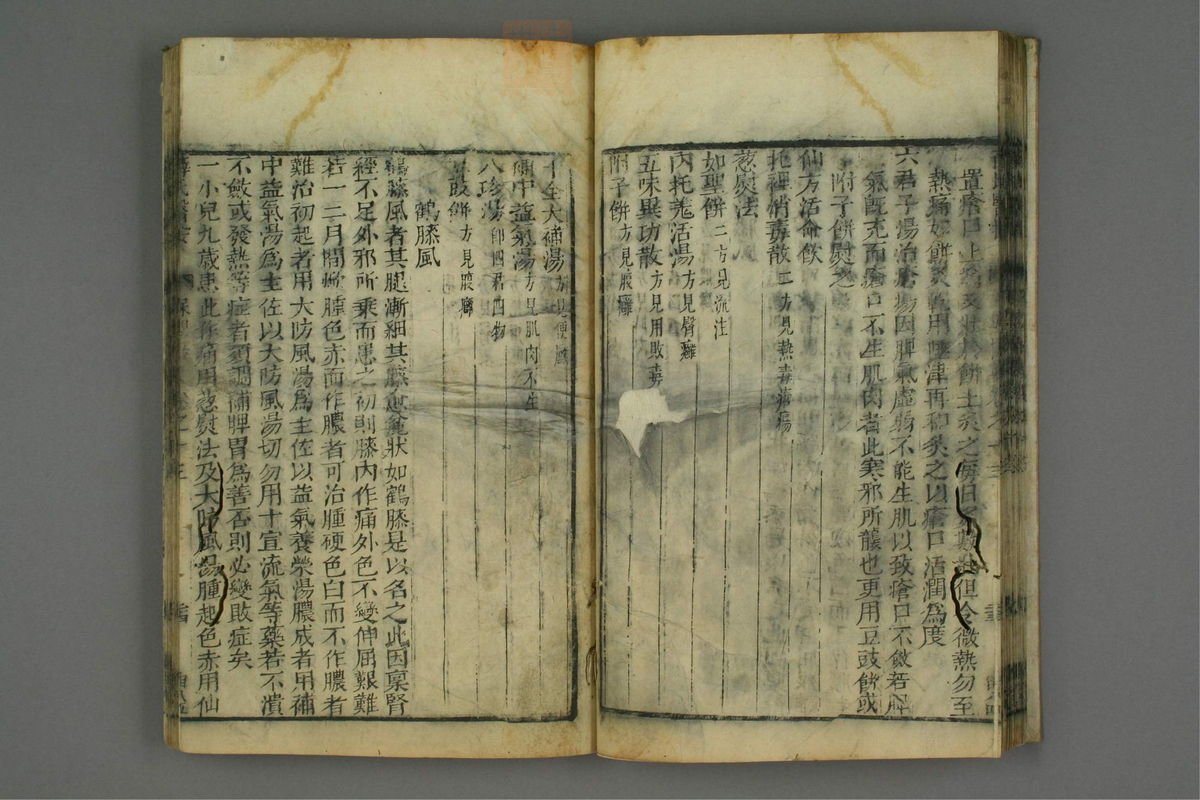 置瘡口上將艾壯於餅上灸之每日灸數壯但令微熱勿至
熱痛如餅乾用唾津再和灸之以瘡口活潤為度
六君子湯治瘡瘍因脾氣虛弱不能生肌以致瘡口不斂若脾
氣既充而瘡口不生肌肉者此寒邪所襲也更用豆豉餅或
附子餅熨之
仙方活命飲
托裡消毒散二方見熱毒瘡瘍
葱熨法
如聖餅二方見流注
內托羌活湯方見臀癰
五味異功散方見用敗毒
附子餅方見腹癰
十全大補湯方見便癰
補中益氣湯方見肌肉不生
八珍湯即四君四物
豆豉餅方見腹癰
鶴膝風
鶴膝風者其腿漸細其膝愈麄狀如鶴膝是以名之此因稟腎
經不足外邪所乘而患之初則膝內作痛外色不變伸屈艱難
若一二月間㷔腫色赤而作膿者可治腫硬色白而不作膿者
難治初起者用大防風湯為主佐以益氣養榮湯膿成者用補
中益氣湯為主佐以大防風湯切勿用十宣流氣等藥若不潰
不斂或發熱等症者須調補脾胃為善否則必變敗症矣
一小兒九歲患此作痛用葱熨法及大防風湯腫起色赤用仙